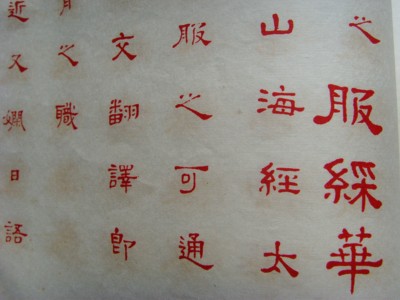 之服綵華
山海經太
服之可通
文翻譯即
月之職
近又嫻日語